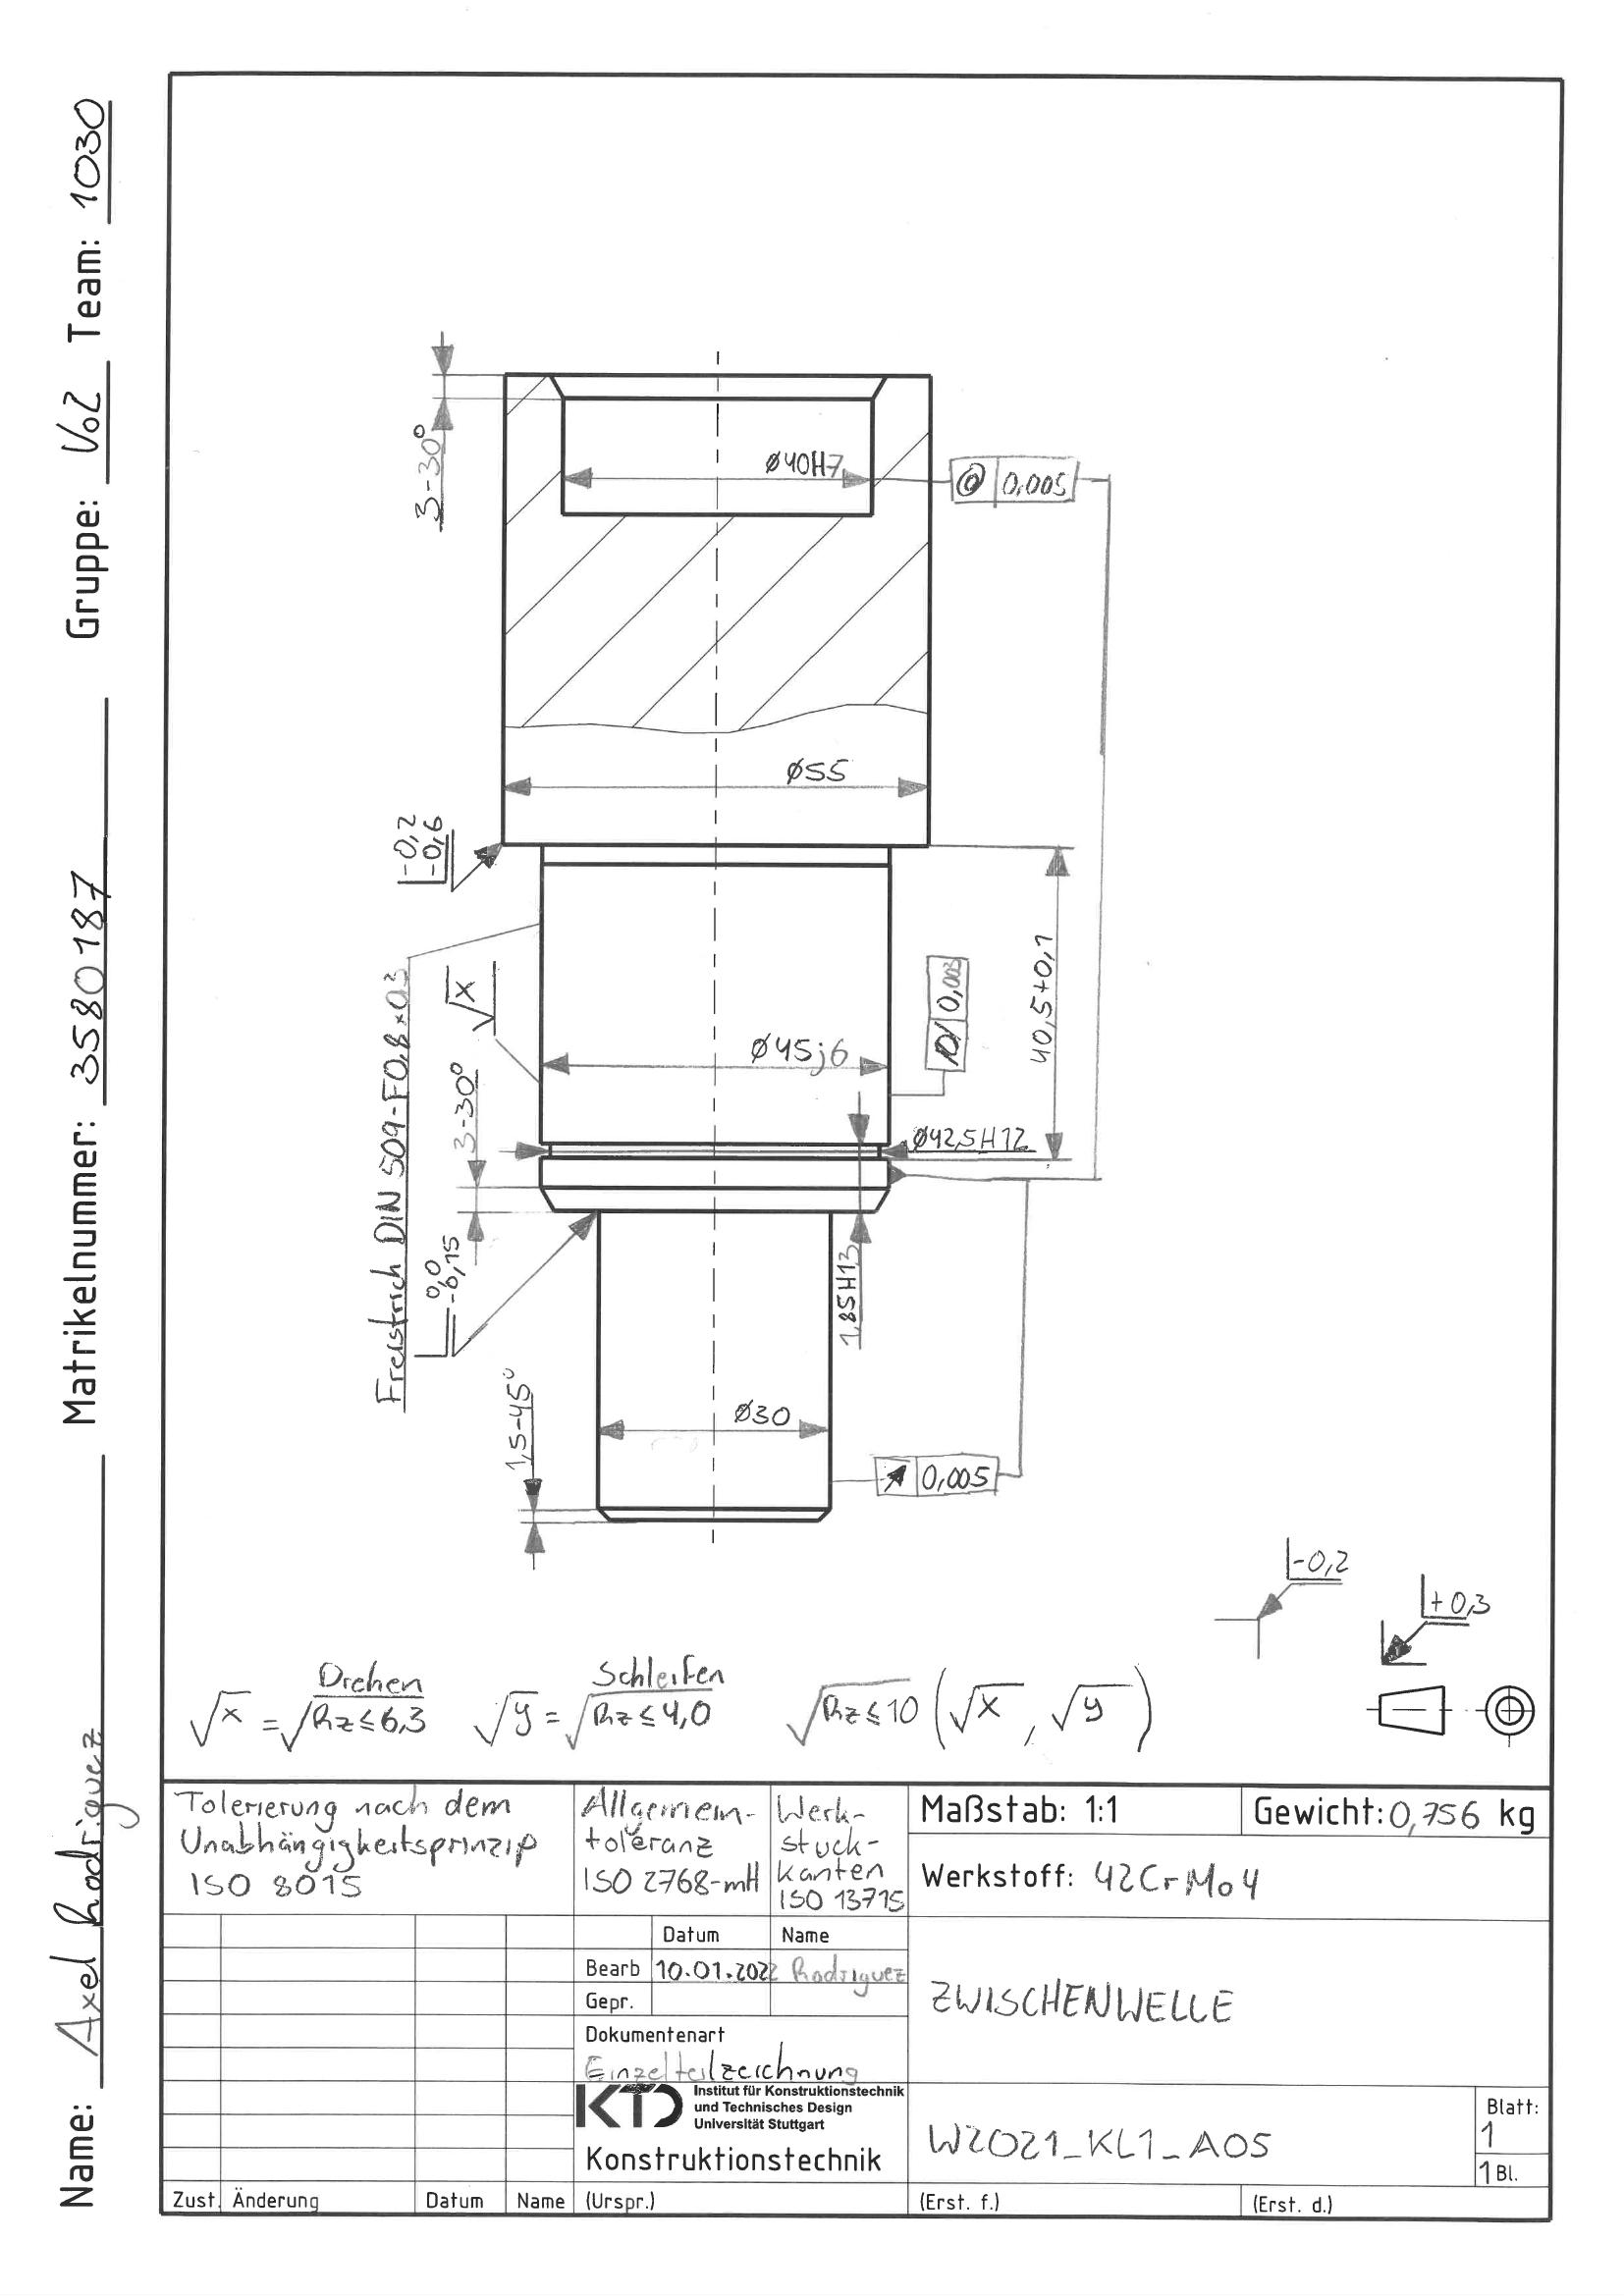 Name: Axel Rodriguez Matrikelnummer: 3580187 Gruppe: Vo2 Team: 1030
3-30°
Ø40H7
0,005
Ø55
-0,2
-0,6
Freistrich DIN 509-F0,8×0,3
√x
Ø45j6
0,003
40,5+0,1
3-30°
Ø42,5H12
0,0
-0,15
1,85H13
1,5-45°
Ø30
0,005
-0,2
+0,3
√x = √ Drehen Rz≤6,3 √y = √ Schleifen Rz≤4,0 √Rz≤10 (√x, √y)
Tolerierung nach dem
Unabhängigkeitsprinzip
ISO 8015
Allgemein-
toleranz
ISO 2768-mH
Werk-
stuck-
kanten
ISO 13715
Maßstab: 1:1
Gewicht: 0,756 kg
Werkstoff: 42CrMo4
Datum Name
Bearb 10.01.2022 Rodriguez
Gepr.
Dokumentenart
Einzelteilzeichnung
ZWISCHENWELLE
KTD
Institut für Konstruktionstechnik
und Technisches Design
Universität Stuttgart
Konstruktionstechnik
W2021_KL1_A05
Blatt:
1
1 Bl.
Zust. Änderung Datum Name (Urspr.) (Erst. f.) (Erst. d.)